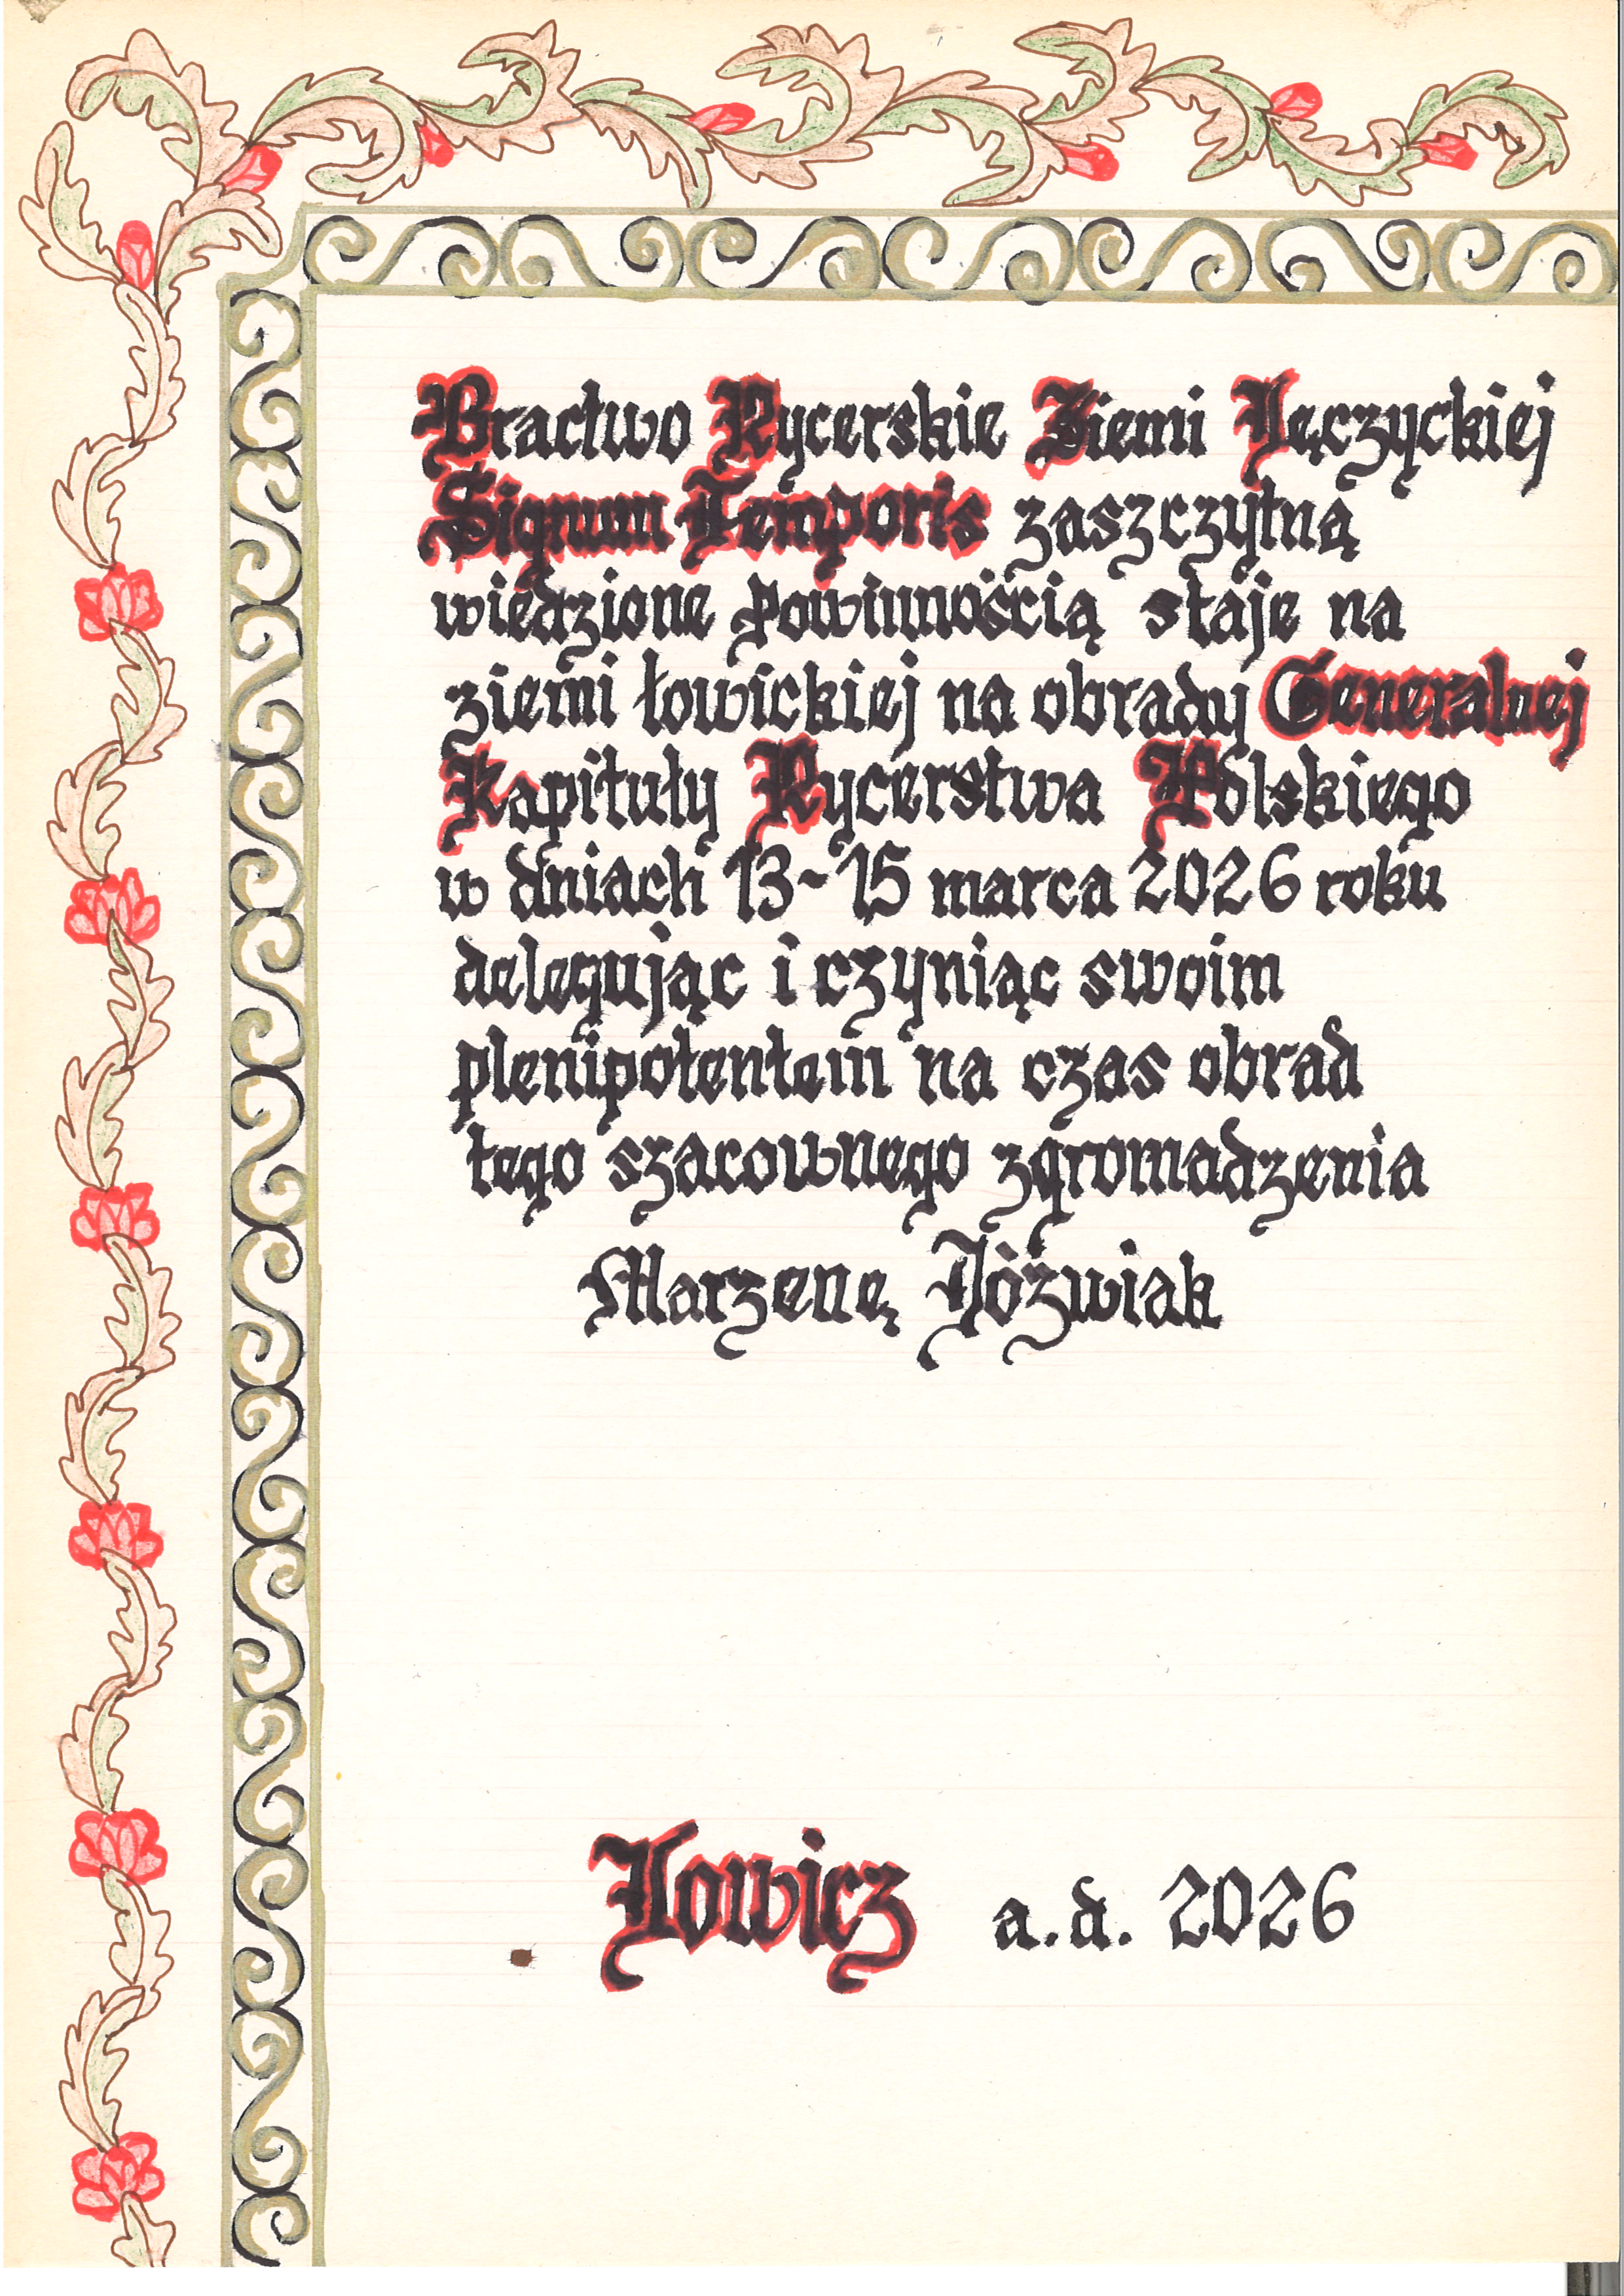 Bractwo Rycerskie Ziemi Łęczyckiej
Signum Temporis zaszczytną
wiedzione powinnością staje na
ziemi łowickiej na obrady Generalnej
Kapituły Rycerstwa Polskiego
w dniach 13-15 marca 2026 roku
delegując i czyniąc swoim
plenipotentem na czas obrad
tego szacownego zgromadzenia
Marzenę Jóźwiak
Łowicz a.d. 2026